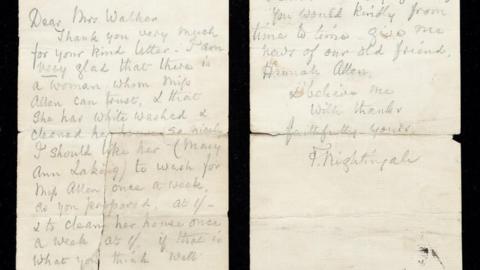 Dear Mrs Walker
Thank you very much
for your kind letter - I am
very glad that there is
a woman whom Miss
Allen can trust, & that
she has white washed &
cleaned her house so nicely
I should like her - (Mary
Ann Laking) to wash for
Miss Allen once a week,
as you proposed, at 1/-
& to clean her house once
a week at 1/. if that is
what you think well
You would kindly from
time to time give me
news of our old friend,
Hannah Allen.
I believe me
with thanks
faithfully yours,
F. Nightingale